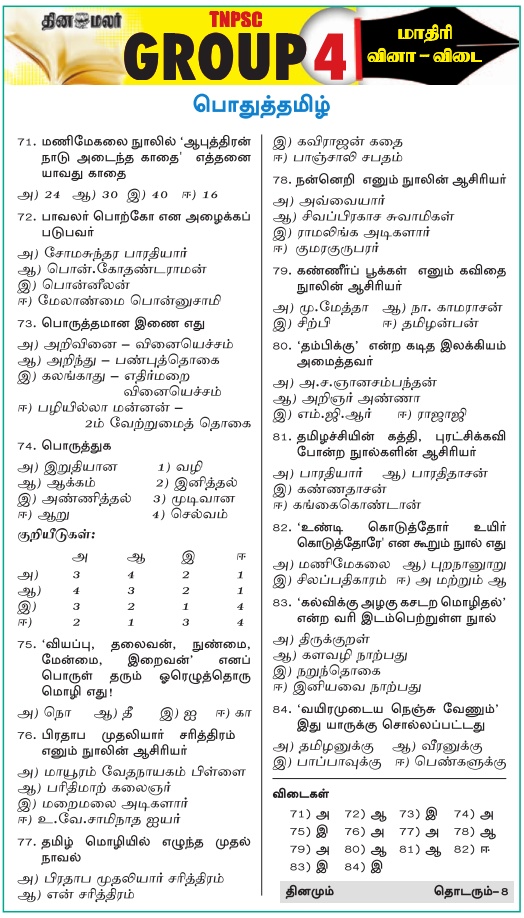 தினமலர்
TNPSC
GROUP 4
மாதிரி
வினா – விடை
பொதுத்தமிழ்
71. மணிமேகலை நூலில் ‘ஆபுத்திரன்
நாடு அடைந்த காதை’ எத்தனை
யாவது காதை
அ) 24 ஆ) 30 இ) 40 ஈ) 16
72. பாவலர் பொற்கோ என அழைக்கப்
படுபவர்
அ) சோமசுந்தர பாரதியார்
ஆ) பொன்.கோதண்டராமன்
இ) பொன்னீலன்
ஈ) மேலாண்மை பொன்னுசாமி
73. பொருத்தமான இணை எது
அ) அறிவினை – வினையெச்சம்
ஆ) அறிந்து – பண்புத்தொகை
இ) கலங்காது – எதிர்மறை
வினையெச்சம்
ஈ) பழியில்லா மன்னன் –
2ம் வேற்றுமைத் தொகை
74. பொருத்துக
அ) இறுதியான 1) வழி
ஆ) ஆக்கம் 2) இனித்தல்
இ) அண்ணித்தல் 3) முடிவான
ஈ) ஆறு 4) செல்வம்
குறியீடுகள்:
அ ஆ இ ஈ
அ) 3 4 2 1
ஆ) 4 3 2 1
இ) 3 2 1 4
ஈ) 2 1 3 4
75. ‘வியப்பு, தலைவன், நுண்மை,
மேன்மை, இறைவன்’ எனப்
பொருள் தரும் ஓரெழுத்தொரு
மொழி எது!
அ) நொ ஆ) தீ இ) ஐ ஈ) கா
76. பிரதாப முதலியார் சரித்திரம்
எனும் நூலின் ஆசிரியர்
அ) மாயூரம் வேதநாயகம் பிள்ளை
ஆ) பரிதிமாற் கலைஞர்
இ) மறைமலை அடிகளார்
ஈ) உ.வே.சாமிநாத ஐயர்
77. தமிழ் மொழியில் எழுந்த முதல்
நாவல்
அ) பிரதாப முதலியார் சரித்திரம்
ஆ) என் சரித்திரம்
இ) கவிராஜன் கதை
ஈ) பாஞ்சாலி சபதம்
78. நன்னெறி எனும் நூலின் ஆசிரியர்
அ) அவ்வையார்
ஆ) சிவப்பிரகாச சுவாமிகள்
இ) ராமலிங்க அடிகளார்
ஈ) குமரகுருபரர்
79. கண்ணீர்ப் பூக்கள் எனும் கவிதை
நூலின் ஆசிரியர்
அ) மு.மேத்தா ஆ) நா. காமராசன்
இ) சிற்பி ஈ) தமிழன்பன்
80. ‘தம்பிக்கு’ என்ற கடித இலக்கியம்
அமைத்தவர்
அ) அ.ச.ஞானசம்பந்தன்
ஆ) அறிஞர் அண்ணா
இ) எம்.ஜி.ஆர் ஈ) ராஜாஜி
81. தமிழச்சியின் கத்தி, புரட்சிக்கவி
போன்ற நூல்களின் ஆசிரியர்
அ) பாரதியார் ஆ) பாரதிதாசன்
இ) கண்ணதாசன்
ஈ) கங்கைகொண்டான்
82. ‘உண்டி கொடுத்தோர் உயிர்
கொடுத்தோரே’ என கூறும் நூல் எது
அ) மணிமேகலை ஆ) புறநானூறு
இ) சிலப்பதிகாரம் ஈ) அ மற்றும் ஆ
83. ‘கல்விக்கு அழகு கசடற மொழிதல்’
என்ற வரி இடம்பெற்றுள்ள நூல்
அ) திருக்குறள்
ஆ) களவழி நாற்பது
இ) நறுந்தொகை
ஈ) இனியவை நாற்பது
84. ‘வயிரமுடைய நெஞ்சு வேணும்’
இது யாருக்கு சொல்லப்பட்டது
அ) தமிழனுக்கு ஆ) வீரனுக்கு
இ) பாப்பாவுக்கு ஈ) பெண்களுக்கு
விடைகள்
71) அ 72) ஆ 73) இ 74) அ
75) இ 76) அ 77) அ 78) ஆ
79) அ 80) ஆ 81) ஆ 82) ஈ
83) இ 84) இ
தினமும் தொடரும்–8